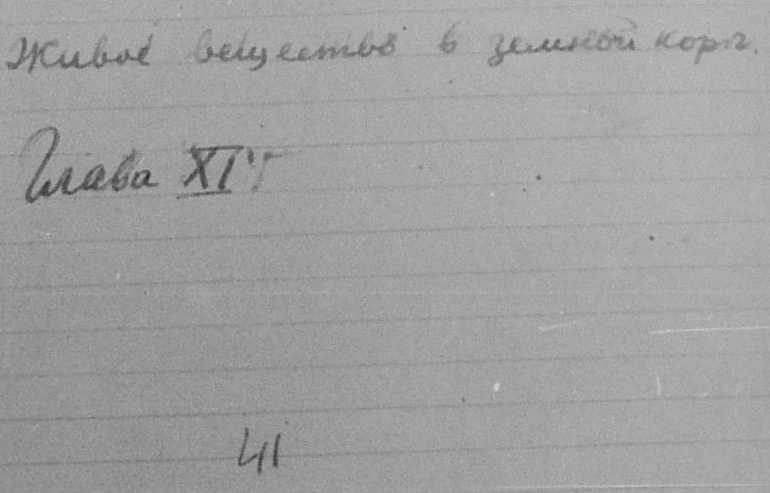 Живое вещество в земной коре.
Глава XI
41